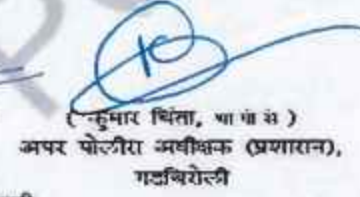 ( कुमार चिंता, भा पो से )
अपर पोलीस अधीक्षक (प्रशासन),
गडचिरोली